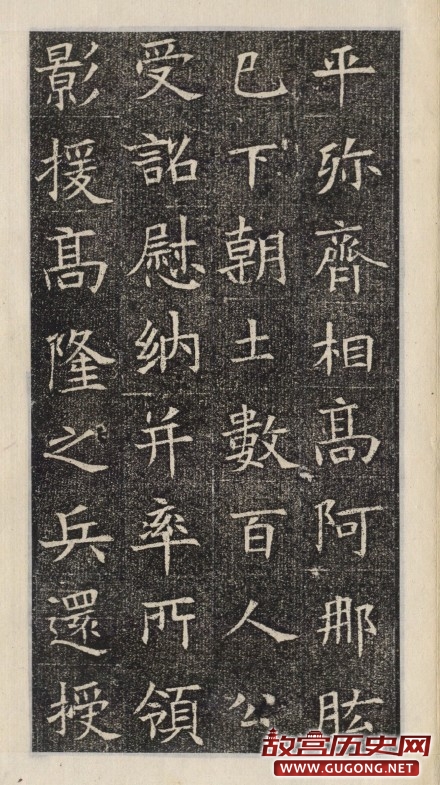 平殄齊相髙阿那肱
已下朝士數百人公
受詔慰納并率所領
影援髙隆之兵還授
故宫历史网
WWW.GUGONG.NET